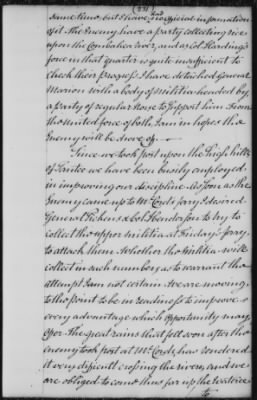 (231)
same time, but I have no official information
of it. The Enemy have a party collecting rice
upon the Combahee river, and as Col Hardings
force in that quarter is quite insufficient to
check their progress I have detached General
Marion with a body of Militia headed by
a party of regular Horse to support him. From
the united force of both I am in hopes the
Enemy will be drove off. —
Since we took post upon the high hills
of Santee we have been busily employed
in improving our discipline. As soon as the
Enemy came up to McCords ferry I desired
General Pickens & Col Henderson to try to
collect the upper Militia at Fridays ferry
to attack them. Whether the Militia will
collect in such numbers as to warrant the
attempt I am not certain. We are moving
to the point to be in readiness to improve
every advantage which opportunity may
offer. The great rains that fell soon after the
enemy took post at McCords, has rendered
it very difficult crossing the rivers, and we
are obliged to come thus far up the Wateree
to